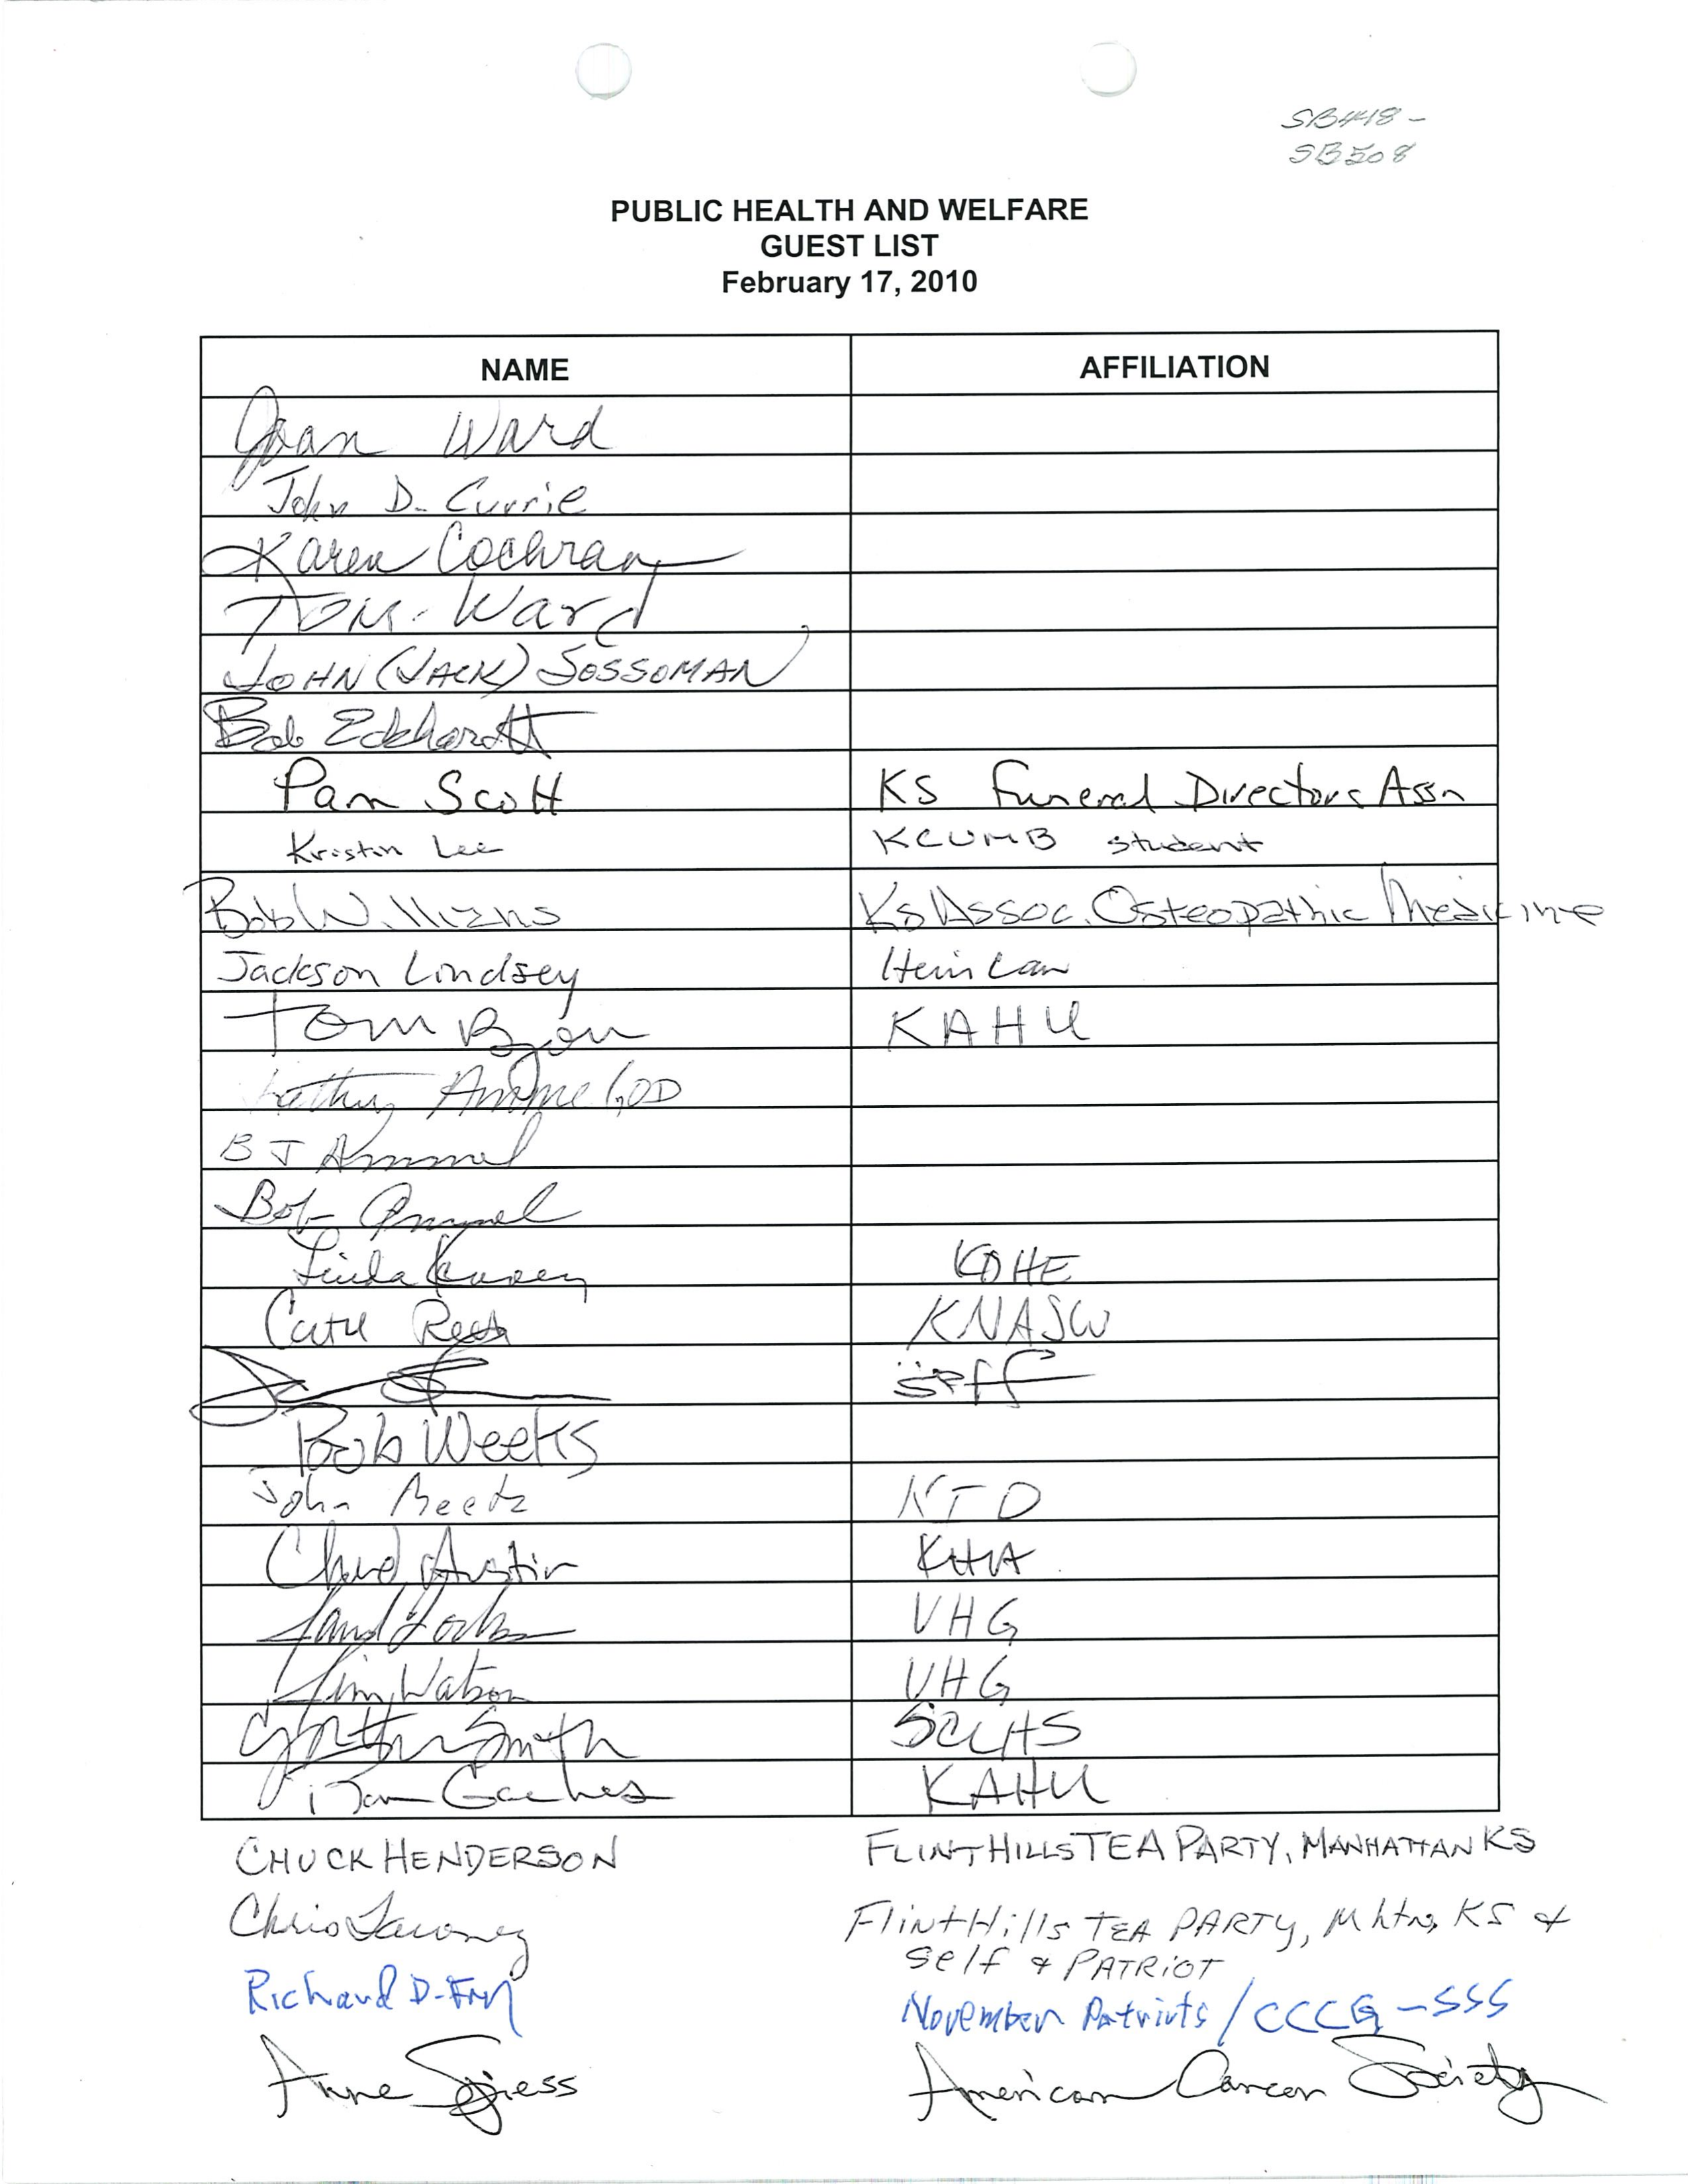 SB448 -
SB508
PUBLIC HEALTH AND WELFARE
GUEST LIST
February 17, 2010
NAME AFFILIATION
Joan Ward
John D. Currie
Karen Cochran
Tom Ward
JOHN (JACK) SOSSOMAN
Bob Eckhardt
Pam Scott KS Funeral Directors Assn
Kristin Lee KCUMB student
Bob Williams Ks Assoc. Osteopathic Medicine
Jackson Lindsey Hein Law
Tom Bryon KAHU
Kathy Ammel, OD
B J Ammel
Bob Ammel
Linda Kenney KDHE
KNASW
Bob Weeks
John Meetz
Chad Austin KHA
VHG
Jim Watson VHG
Smith SCLHS
Gaches KAHU
CHUCK HENDERSON FLINT HILLS TEA PARTY, MANHATTAN KS
Chris Flint Hills TEA PARTY, Mhtn, KS &
Self & PATRIOT
Richard D. Fry November Patriots / CCCG - SSS
Anne Spiess American Cancer Society